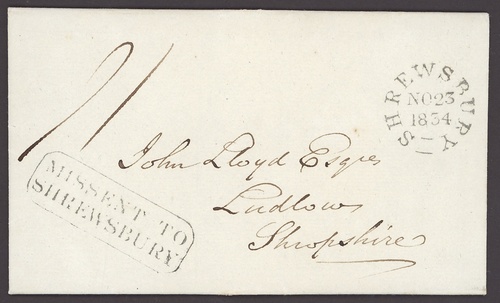 SHREWSBURY
NO23
1834
John Lloyd Esqre
Ludlow
Shropshire
MISSENT TO
SHREWSBURY